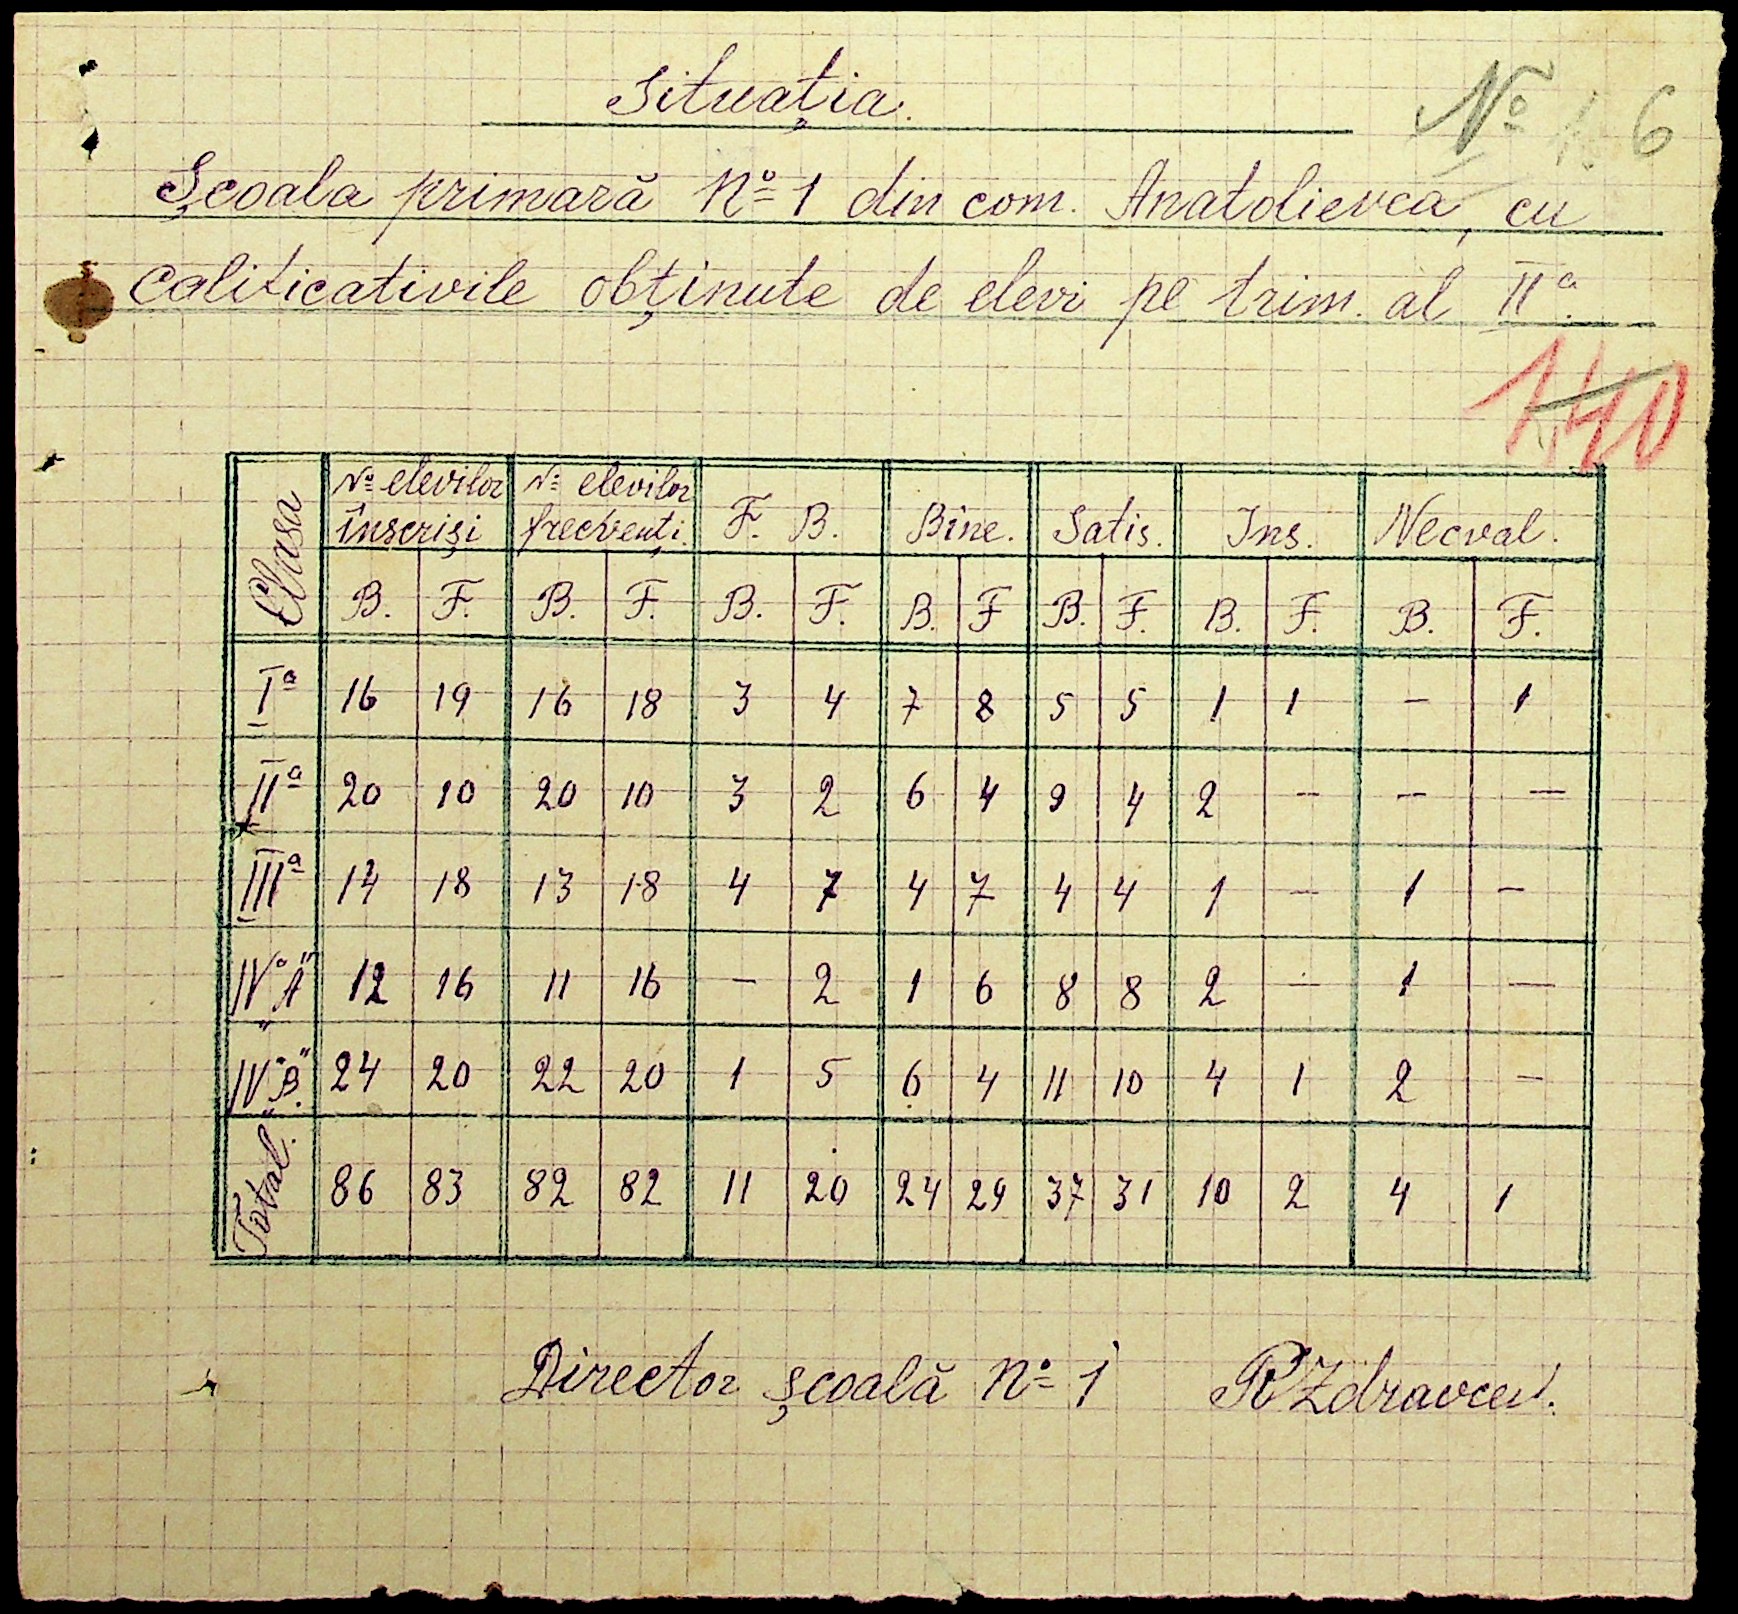 Situația.
No 6
Școala primară No 1 din com. Anatolievca, cu
calificativile obținute de elevi pe trim. al IIa.
140
Clasa | No elevilor înscriși | No elevilor frecvenți. | F. B. | Bine. | Satis. | Ins. | Necval.
B. F. B. F. B. F. B. F B. F. B. F. B. F.
Ia 16 19 16 18 3 4 7 8 5 5 1 1 — 1
IIa 20 10 20 10 3 2 6 4 9 4 2 — — —
IIIa 14 18 13 18 4 7 4 7 4 4 1 — 1 —
IVa „A" 12 16 11 16 — 2 1 6 8 8 2 — 1 —
IVa „B." 24 20 22 20 1 5 6 4 11 10 4 1 2 —
Total. 86 83 82 82 11 20 24 29 37 31 10 2 4 1
Director școală No 1 R Zdravcev.